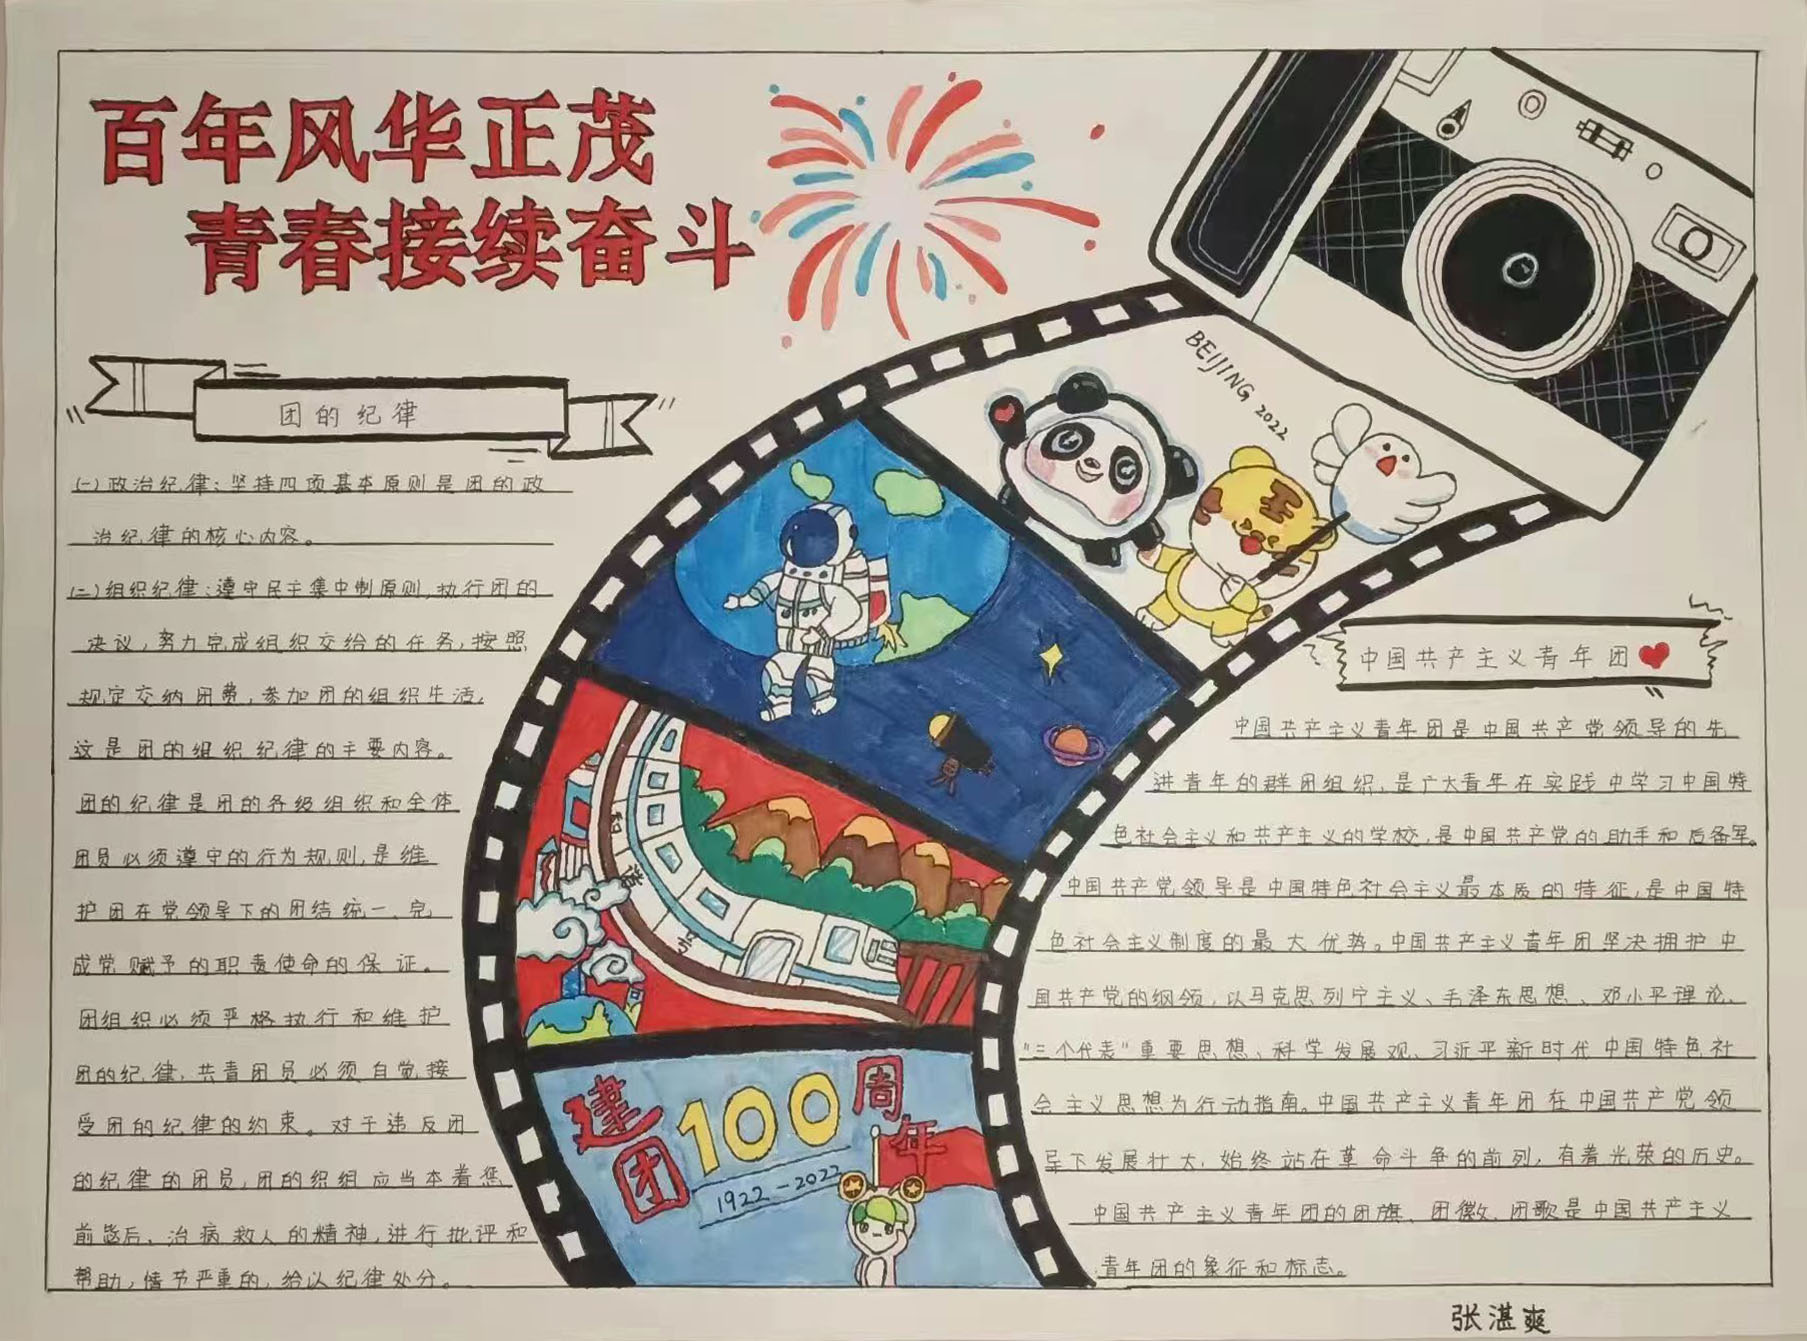 百年风华正茂
青春接续奋斗
团的纪律
(一)政治纪律:坚持四项基本原则是团的政
治纪律的核心内容。
(二)组织纪律:遵守民主集中制原则,执行团的
决议,努力完成组织交给的任务,按照
规定交纳团费,参加团的组织生活,
这是团的组织纪律的主要内容。
团的纪律是团的各级组织和全体
团员必须遵守的行为规则,是维
护团在党领导下的团结统一、完
成党赋予的职责使命的保证。
团组织必须严格执行和维护
团的纪律,共青团员必须自觉接
受团的纪律的约束。对于违反团
的纪律的团员,团的织组应当本着惩
前毖后、治病救人的精神,进行批评和
帮助,情节严重的,给以纪律处分。
BEIJING 2022
王
和谐号
建团100周年
1922-2022
中国共产主义青年团
中国共产主义青年团是中国共产党领导的先
进青年的群团组织,是广大青年在实践中学习中国特
色社会主义和共产主义的学校,是中国共产党的助手和后备军。
中国共产党领导是中国特色社会主义最本质的特征,是中国特
色社会主义制度的最大优势。中国共产主义青年团坚决拥护中
国共产党的纲领,以马克思列宁主义、毛泽东思想、邓小平理论、
"三个代表"重要思想、科学发展观、习近平新时代中国特色社
会主义思想为行动指南。中国共产主义青年团在中国共产党领
导下发展壮大,始终站在革命斗争的前列,有着光荣的历史。
中国共产主义青年团的团旗、团徽、团歌是中国共产主义
青年团的象征和标志。
张湛爽